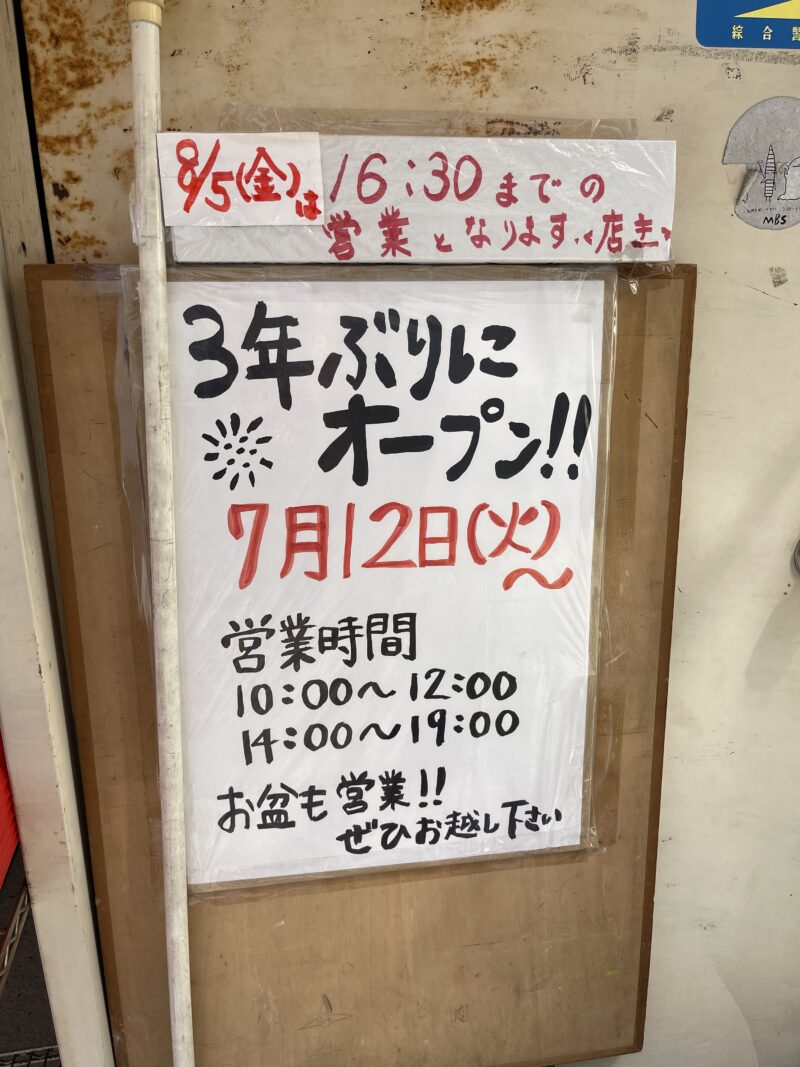 綜合警
8/5(金)は 16:30までの
営業となります。<店主>
3年ぶりに
オープン!!
7月12日(火)~
営業時間
10:00~12:00
14:00~19:00
お盆も営業!!
ぜひお越し下さい
MBS